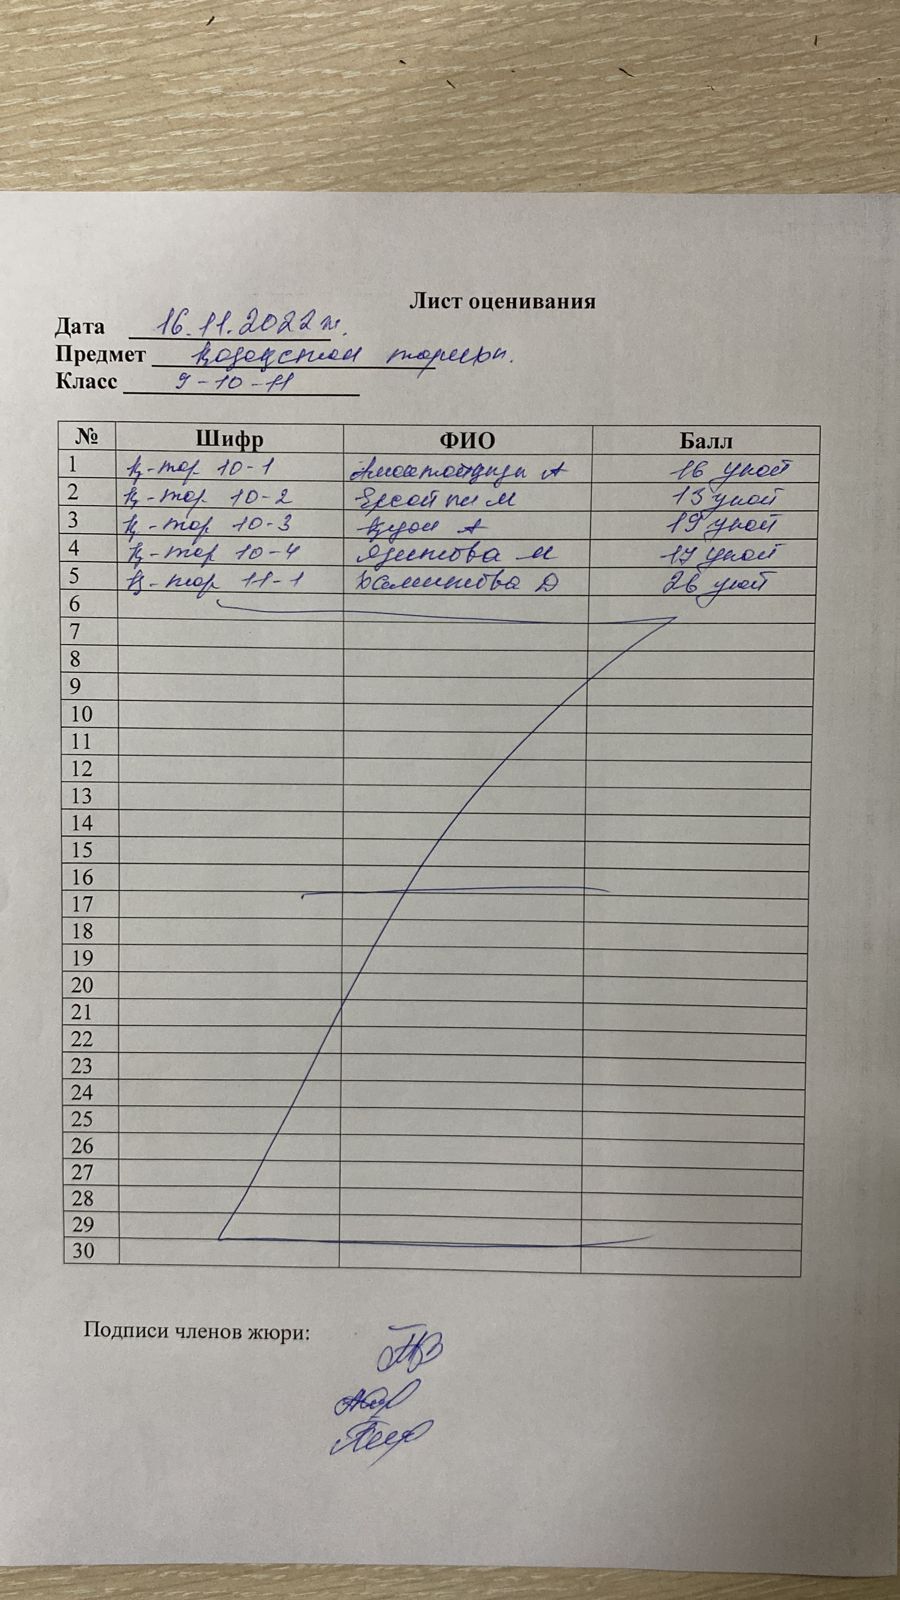 Лист оценивания
Дата 16.11.2022 ж.
Предмет Қазақстан тарихы.
Класс 9-10-11
№ Шифр ФИО Балл
1 Қ-тар 10-1 А 16 ұпай
2 Қ-тар 10-2 М 13 ұпай
3 Қ-тар 10-3 А 19 ұпай
4 Қ-тар 10-4 17 ұпай
5 Қ-тар 11-1 Д 26 ұпай
6
7
8
9
10
11
12
13
14
15
16
17
18
19
20
21
22
23
24
25
26
27
28
29
30
Подписи членов жюри: